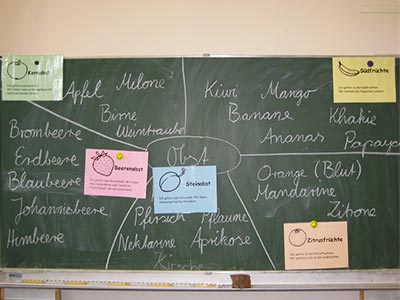 Kernobst
Apfel
Melone
Birne
Weintraube
Kiwi
Mango
Banane
Ananas
Khakie
Papaya
Südfrüchte
Brombeere
Erdbeere
Blaubeere
Johannisbeere
Himbeere
Beerenobst
Obst
Steinobst
Pfirsich
Pflaume
Nektarine
Aprikose
Kirsche
Orange (Blut)
Mandarine
Zitrone
Zitrusfrüchte